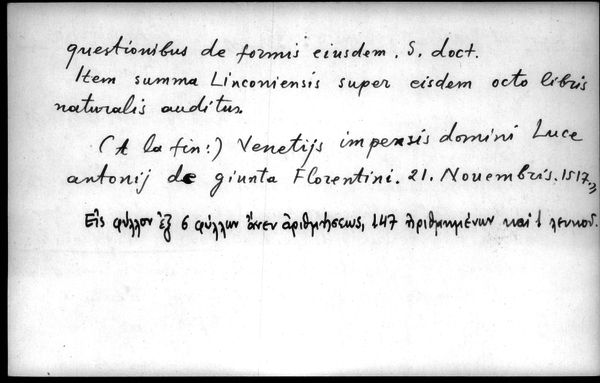 questionibus de formis eiusdem . S. doct.
Item summa Linconiensis super eisdem octo libris
naturalis auditus.
(A la fin:) Venetijs impensis domini Luce
antonij de giunta Florentini. 21. Nouembris. 1517.»
Εἰς φύλλον ἐξ 6 φύλλων ἄνευ ἀριθμήσεως, 147 ἀριθμημένων καὶ 1 λευκοῦ.